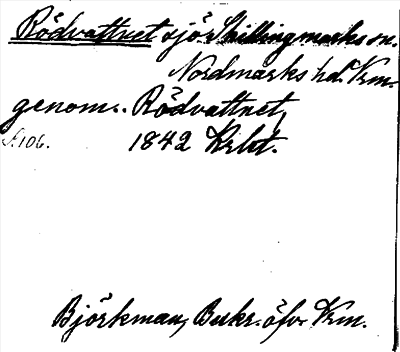 Rödvattnet sjör Skillingmarks sn.
Nordmarks hd. Vrm.
genom.. Rödvattnet,
S. 106. 1842 Krkt.
Björkman, Beskr. öfv. Vrm.